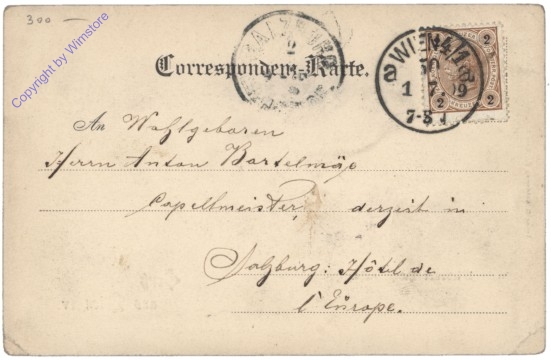 300 —
Copyright by Wimstore
Correspondenz-Karte.
WIEN 4/1
50
1 7 99
7-8
2
2
2
An Wohlgeboren
Herrn Anton Bartelmäs
Capellmeister, derzeit in
Salzburg: Hôtel de
l'Europe.